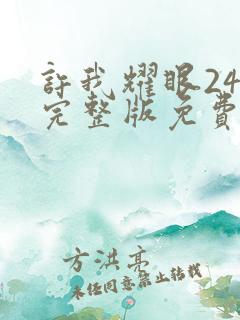 許我耀眼24
完整版免費
方洪亮
未經同意禁止轉載